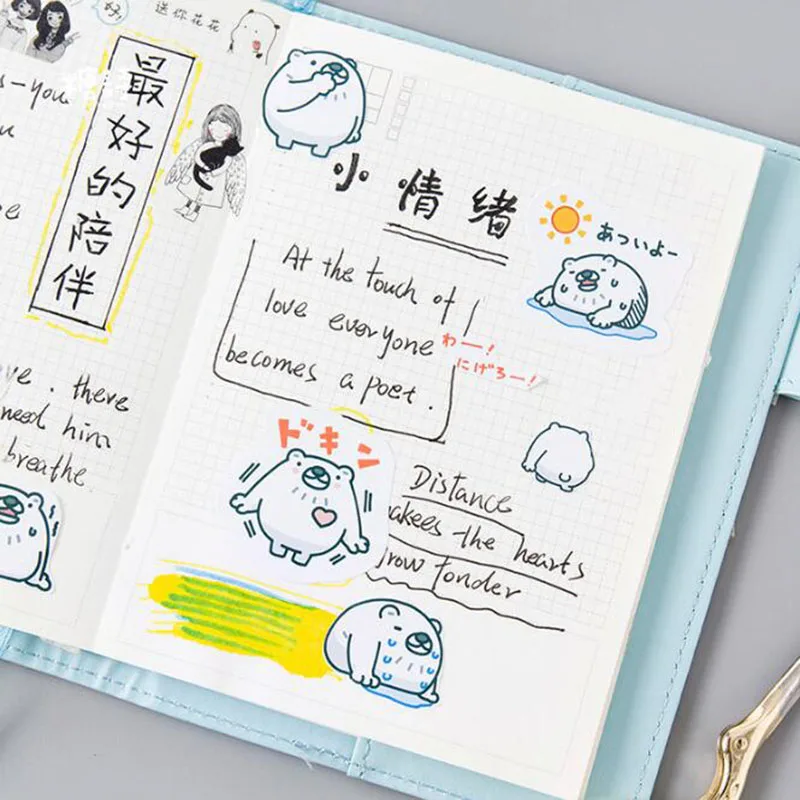 好!
迷你花花
s-you
最好的陪伴
ve. there
need him
breathe
小情绪
あついよー
At the touch of
love everyone
becomes a poet.
わー!
にげろー!
ドキン
Distance
akees the hearts
row fonder